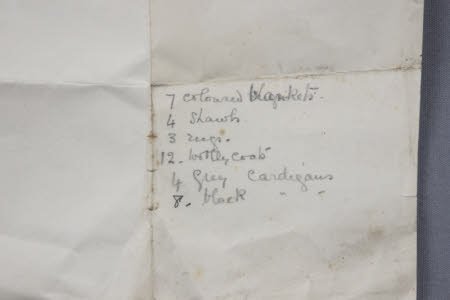 7 coloured blankets.
4 Shawls
3 rugs.
12. woolley coats
4 Grey Cardigans
8. black " "